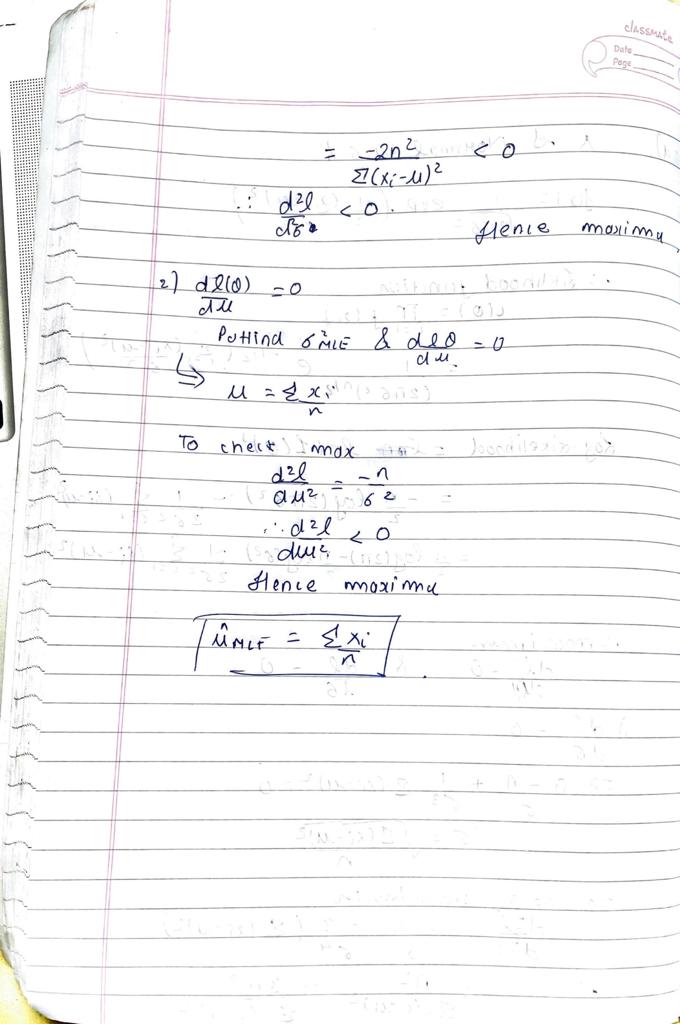 classmate
Date
Page
= -2n² / Σ(xi-μ)² < 0
∴ d²l / dσ² < 0.
Hence maxima
2) dl(θ) / dμ = 0
Puttind σ²MLE & dlθ / dμ = 0
⇒ μ = Σ xi / n
To check max
d²l / dμ² = -n / σ²
∴ d²l / dμ² < 0
Hence maxima
μ̂MLE = Σ xi / n